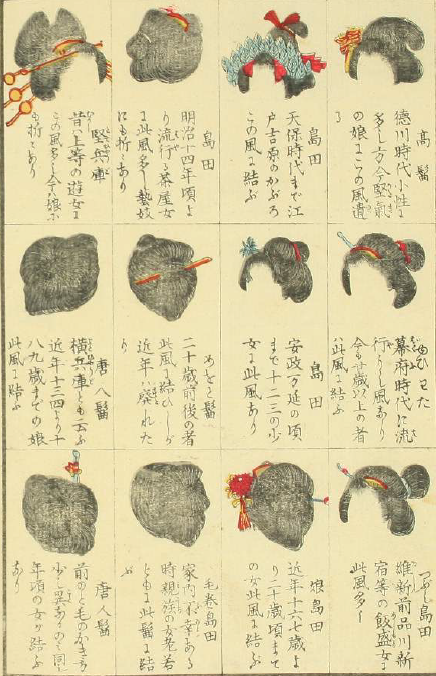 高髷
徳川時代小性に
多し方今堅氣
の娘にこの風遺
る
島田
天保時代まで江
戸吉原のかぶろ
この風に結ぶ
島田
明治十四年頃よ
り流行る茶屋女
に此風多し藝妓
にも折々あり
竪兵庫
昔ハ上等の遊女に
この風多く今ハ娘に
も折々あり
幕府時代に流
行らし風なり
今も廿歳以上の者
ハ此風に結ぶ
島田
安政万延の頃
まで十二三の少
女に此風あり
めをと髷
二十歳前後の者
此風に結ひしが
近年ハ癈れた
り
唐人髷
横兵庫とも云ふ
近年十三四より十
八九歳までの娘
此風に結ふ
つぶし島田
維新前品川新
宿等の飯盛女に
此風多し
娘島田
近年十六七歳よ
り二十歳頃まで
の女此風に結ぶ
毛巻島田
家内に不幸ある
時親族の女老若
ともに此髷に結
ぶ
唐人髷
前のと毛のかき方
少し異なるのミ同し
年頃の女り結ぶ
なり